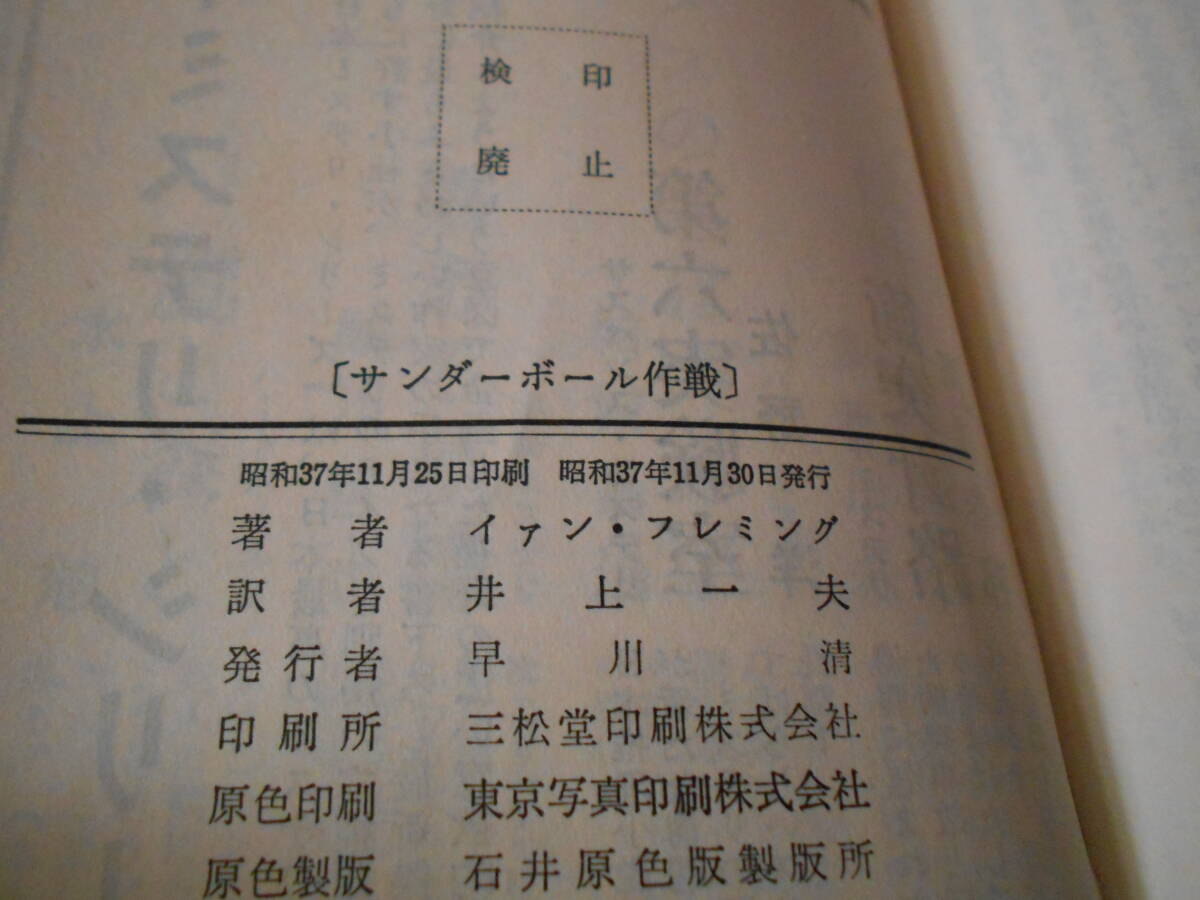 検印
廃止
〔サンダーボール作戦〕
昭和37年11月25日印刷　昭和37年11月30日発行
著者　イァン・フレミング
訳者　井上一夫
発行者　早川清
印刷所　三松堂印刷株式会社
原色印刷　東京写真印刷株式会社
原色製版　石井原色版製版所